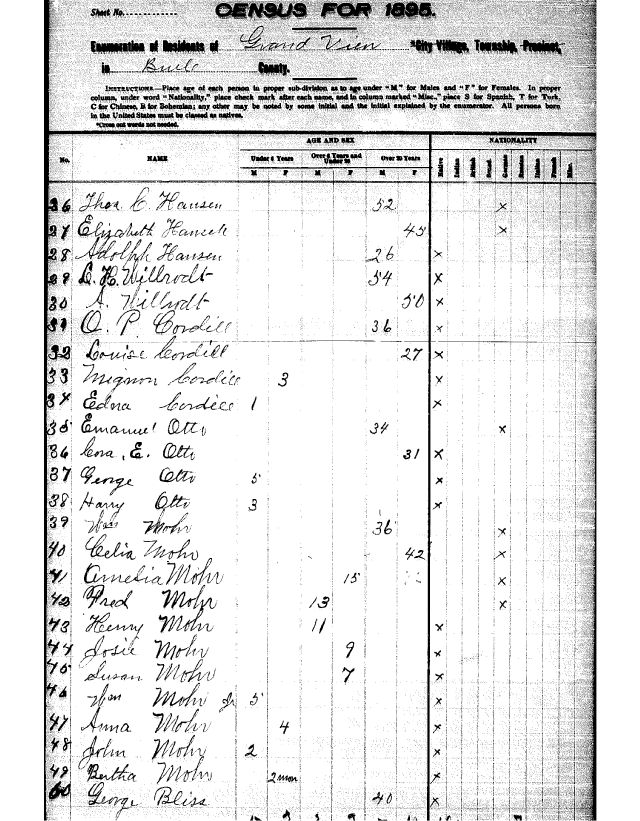 Sheet No.
CENSUS FOR 1895.
Enumeration of Residents of Grand View City Village, Township, Precinct,
in Buele County.
INSTRUCTIONS—Place age of each person in proper sub-division as to age under "M" for Males and "F" for Females. In proper
column, under word "Nationality," place check mark after each name, and in column marked "Misc.," place S for Spanish, T for Turk,
C for Chinese, B for Bohemian; any other may be noted by some initial and the initial explained by the enumerator. All persons born
in the United States must be classed as natives.
*Cross out words not needed.
AGE AND SEX NATIONALITY
No. NAME Under 6 Years Over 6 Years and Under 20 Over 20 Years
M F M F M F Native
26 Thos C. Hansen 52 x
27 Elizabeth Hansen 45 x
28 Adolph Hansen 26 x
29 L. H. Willrodt 54 x
30 A. Willrodt 50 x
31 O. P. Cordill 36 x
32 Louise Cordill 27 x
33 Mignon Cordill 3 x
34 Edna Cordill 1 x
35 Emanuel Otto 34 x
36 Cora, E. Otto 31 x
37 George Otto 5 x
38 Harry Otto 3 x
39 Wm Mohr 36 x
40 Celia Mohr 42 x
41 Amelia Mohr 15 x
42 Fred Mohr 13 x
43 Henry Mohr 11 x
44 Josie Mohr 9 x
45 Susan Mohr 7 x
46 Wm Mohr Jr 5 x
47 Anna Mohr 4 x
48 John Mohr 2 x
49 Bertha Mohr 2 mon x
50 George Bliss 40 x